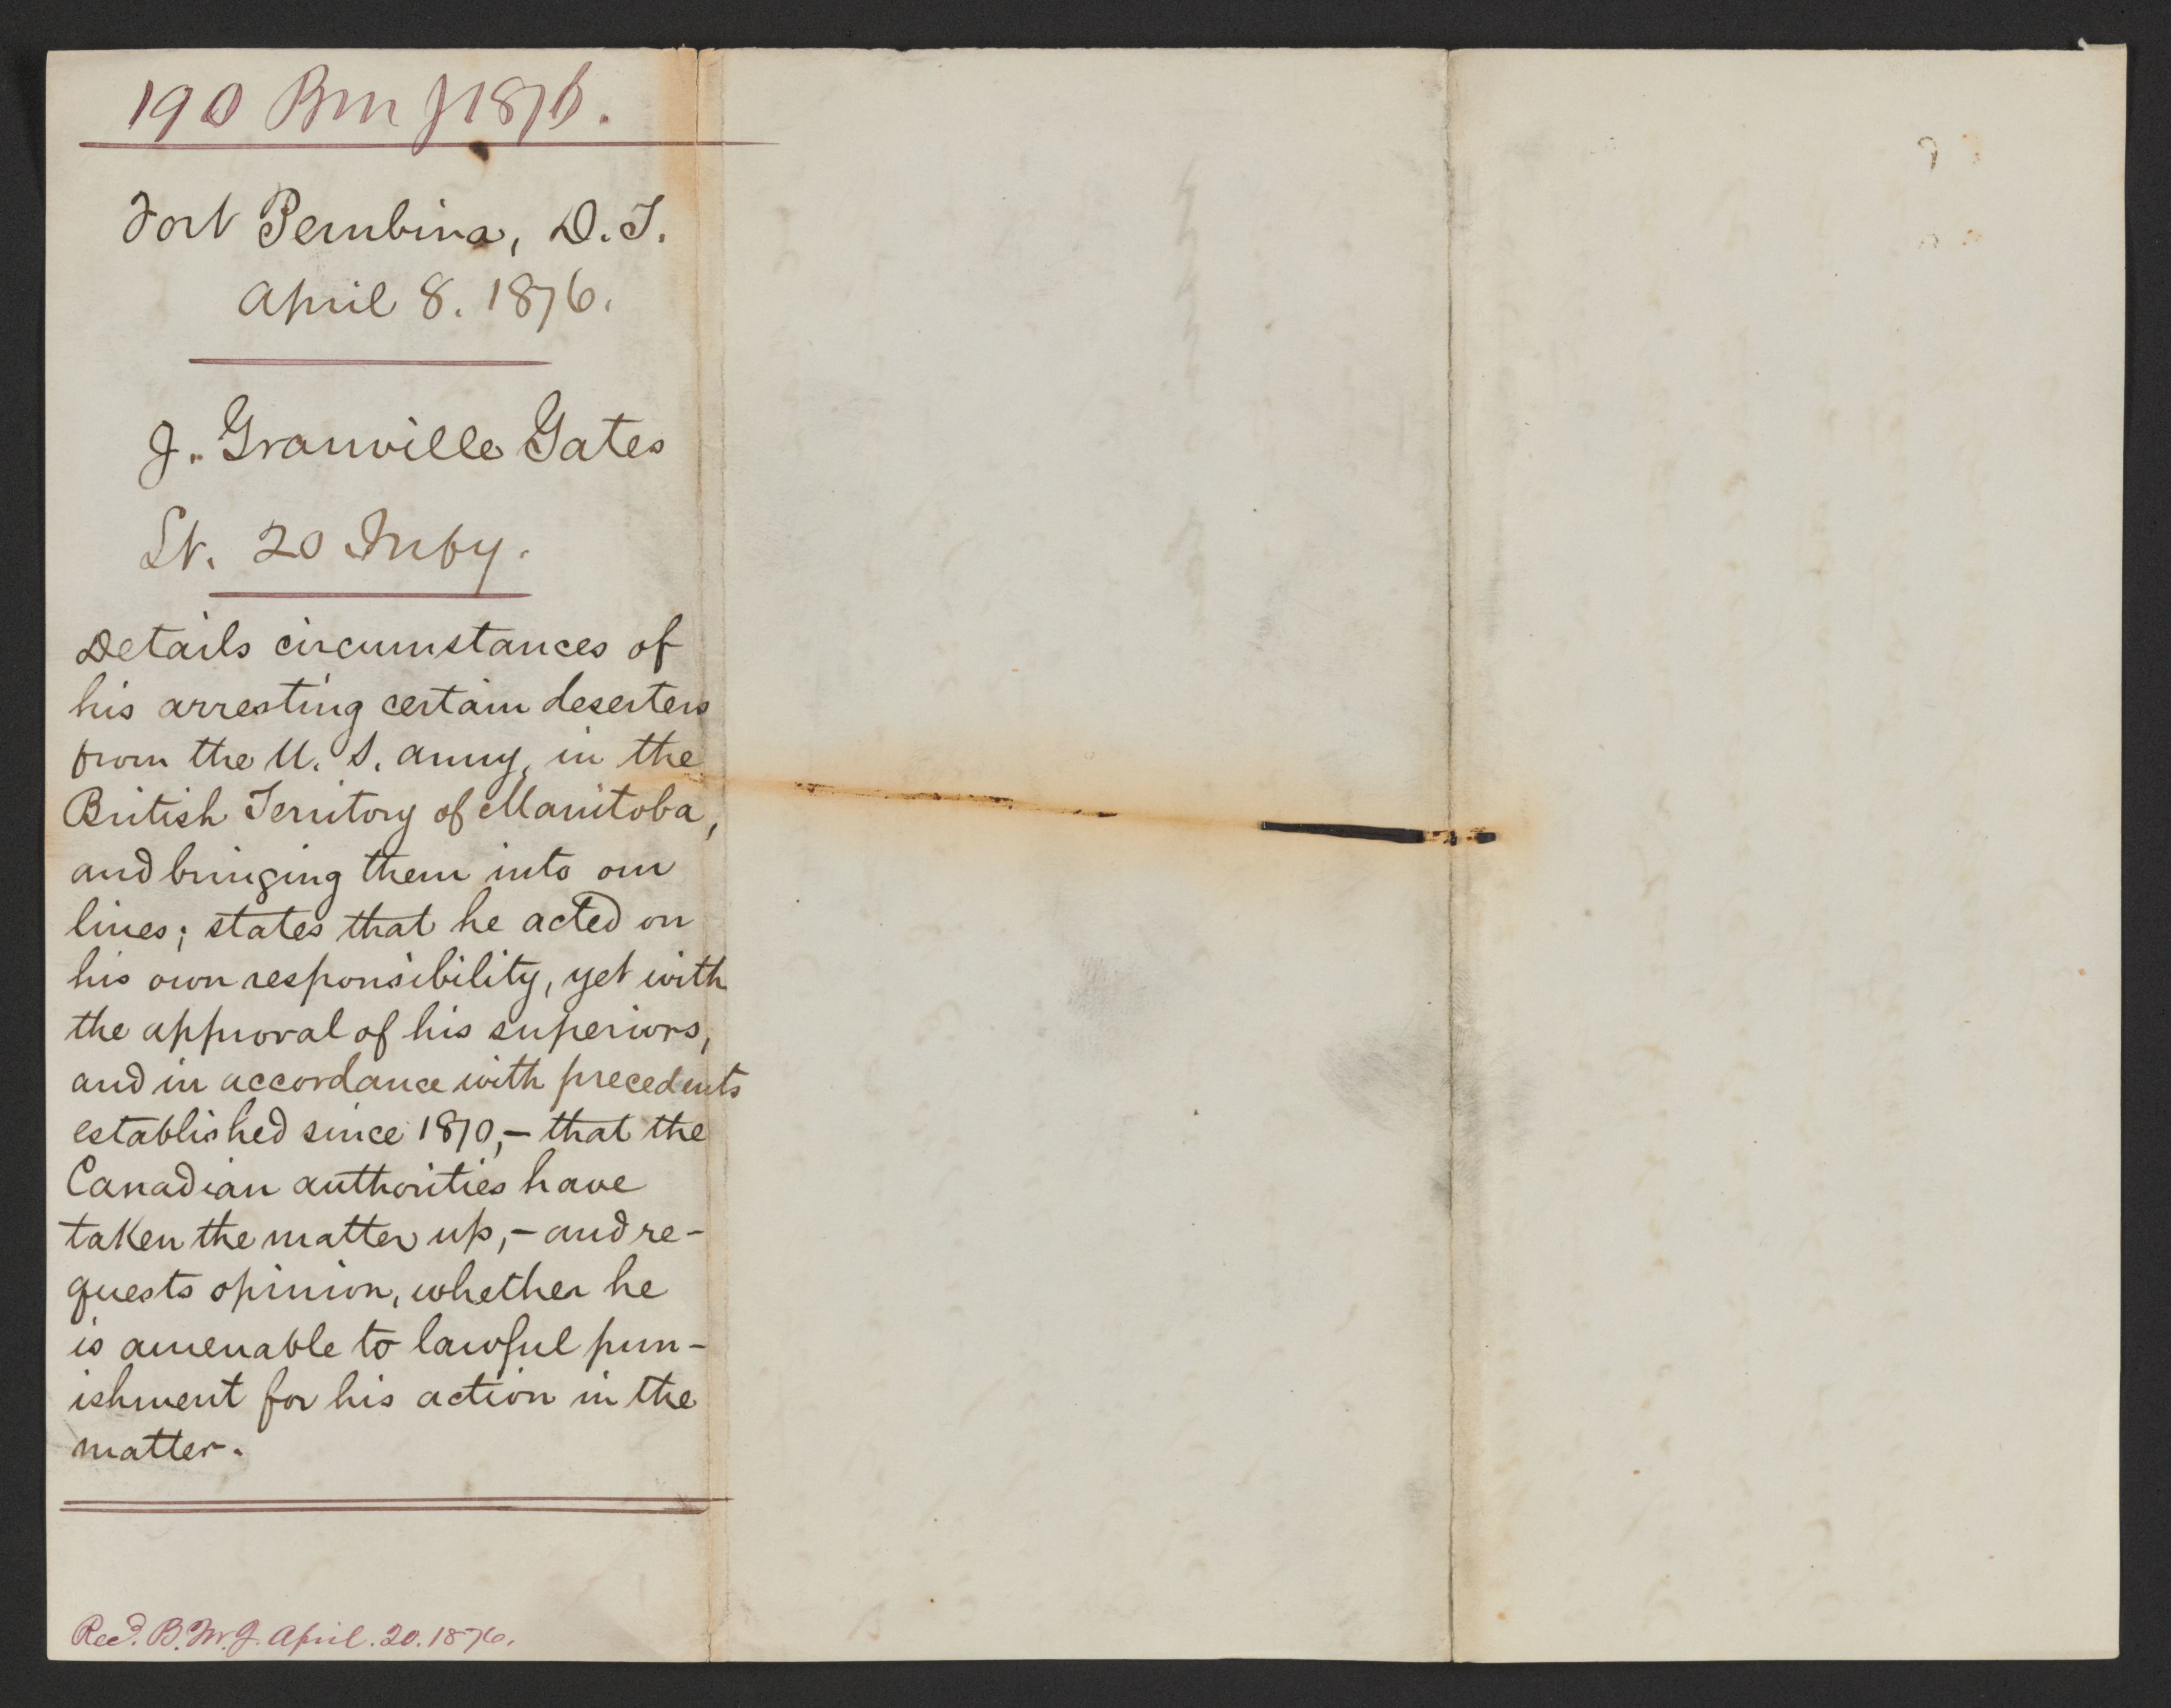 190 BMJ 1876.
Fort Pembina, D.T.
April 8. 1876.
J. Granville Gates
Lt. 20 Infy.
Details circumstances of
his arresting certain deserters
from the U. S. army, in the
British Territory of Manitoba,
and bringing them into our
lines; states that he acted on
his own responsibility, yet with
the approval of his superiors,
and in accordance with precedents
established since 1870,- that the
Canadian authorities have
taken the matter up,- and re-
quests opinion, whether he
is amenable to lawful pun-
ishment for his action in the
matter.
Recd. B.M.J. April. 20. 1876.